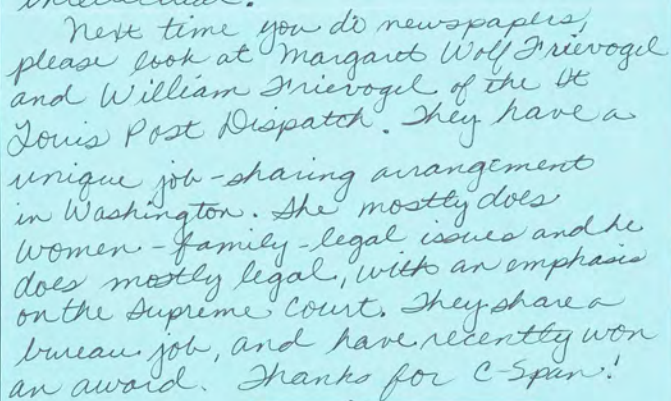 intellectual.
Next time you do newspapers,
please look at Margaret Wolf Frievogel
and William Frievogel of the St
Louis Post Dispatch. They have a
unique job-sharing arrangement
in Washington. She mostly does
women-family-legal issues and he
does mostly legal, with an emphasis
on the Supreme Court. They share a
bureau job, and have recently won
an award. Thanks for C-Span!